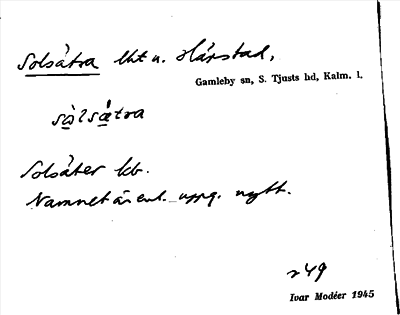 Solsåtra lht u. Hårstad,
Gamleby sn, S. Tjusts hd, Kalm. l.
sòlsåtra
Solsåter kb.
Namnet är enl. uppg. nytt.
249
Ivar Modéer 1945